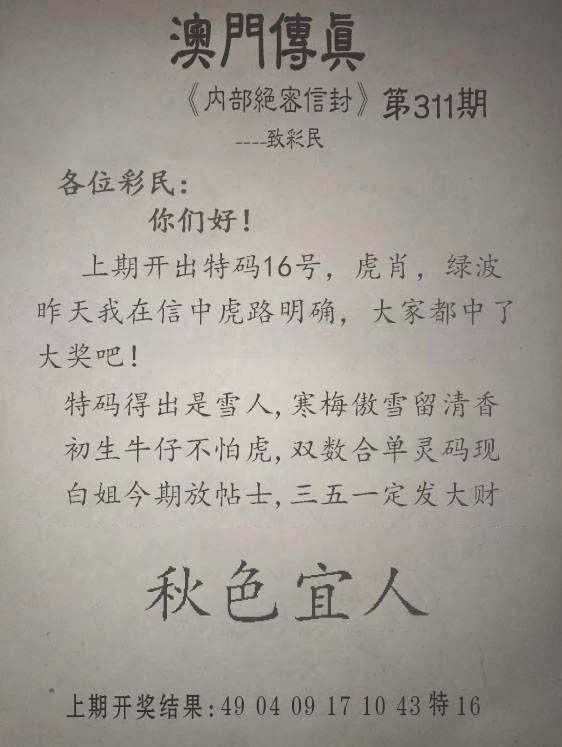 澳門傳真
《内部絕密信封》第311期
----致彩民
各位彩民：
你们好！
上期开出特码16号，虎肖，绿波
昨天我在信中虎路明确，大家都中了
大奖吧！
特码得出是雪人,寒梅傲雪留清香
初生牛仔不怕虎,双数合单灵码现
白姐今期放帖士,三五一定发大财
秋色宜人
上期开奖结果:49 04 09 17 10 43 特 16